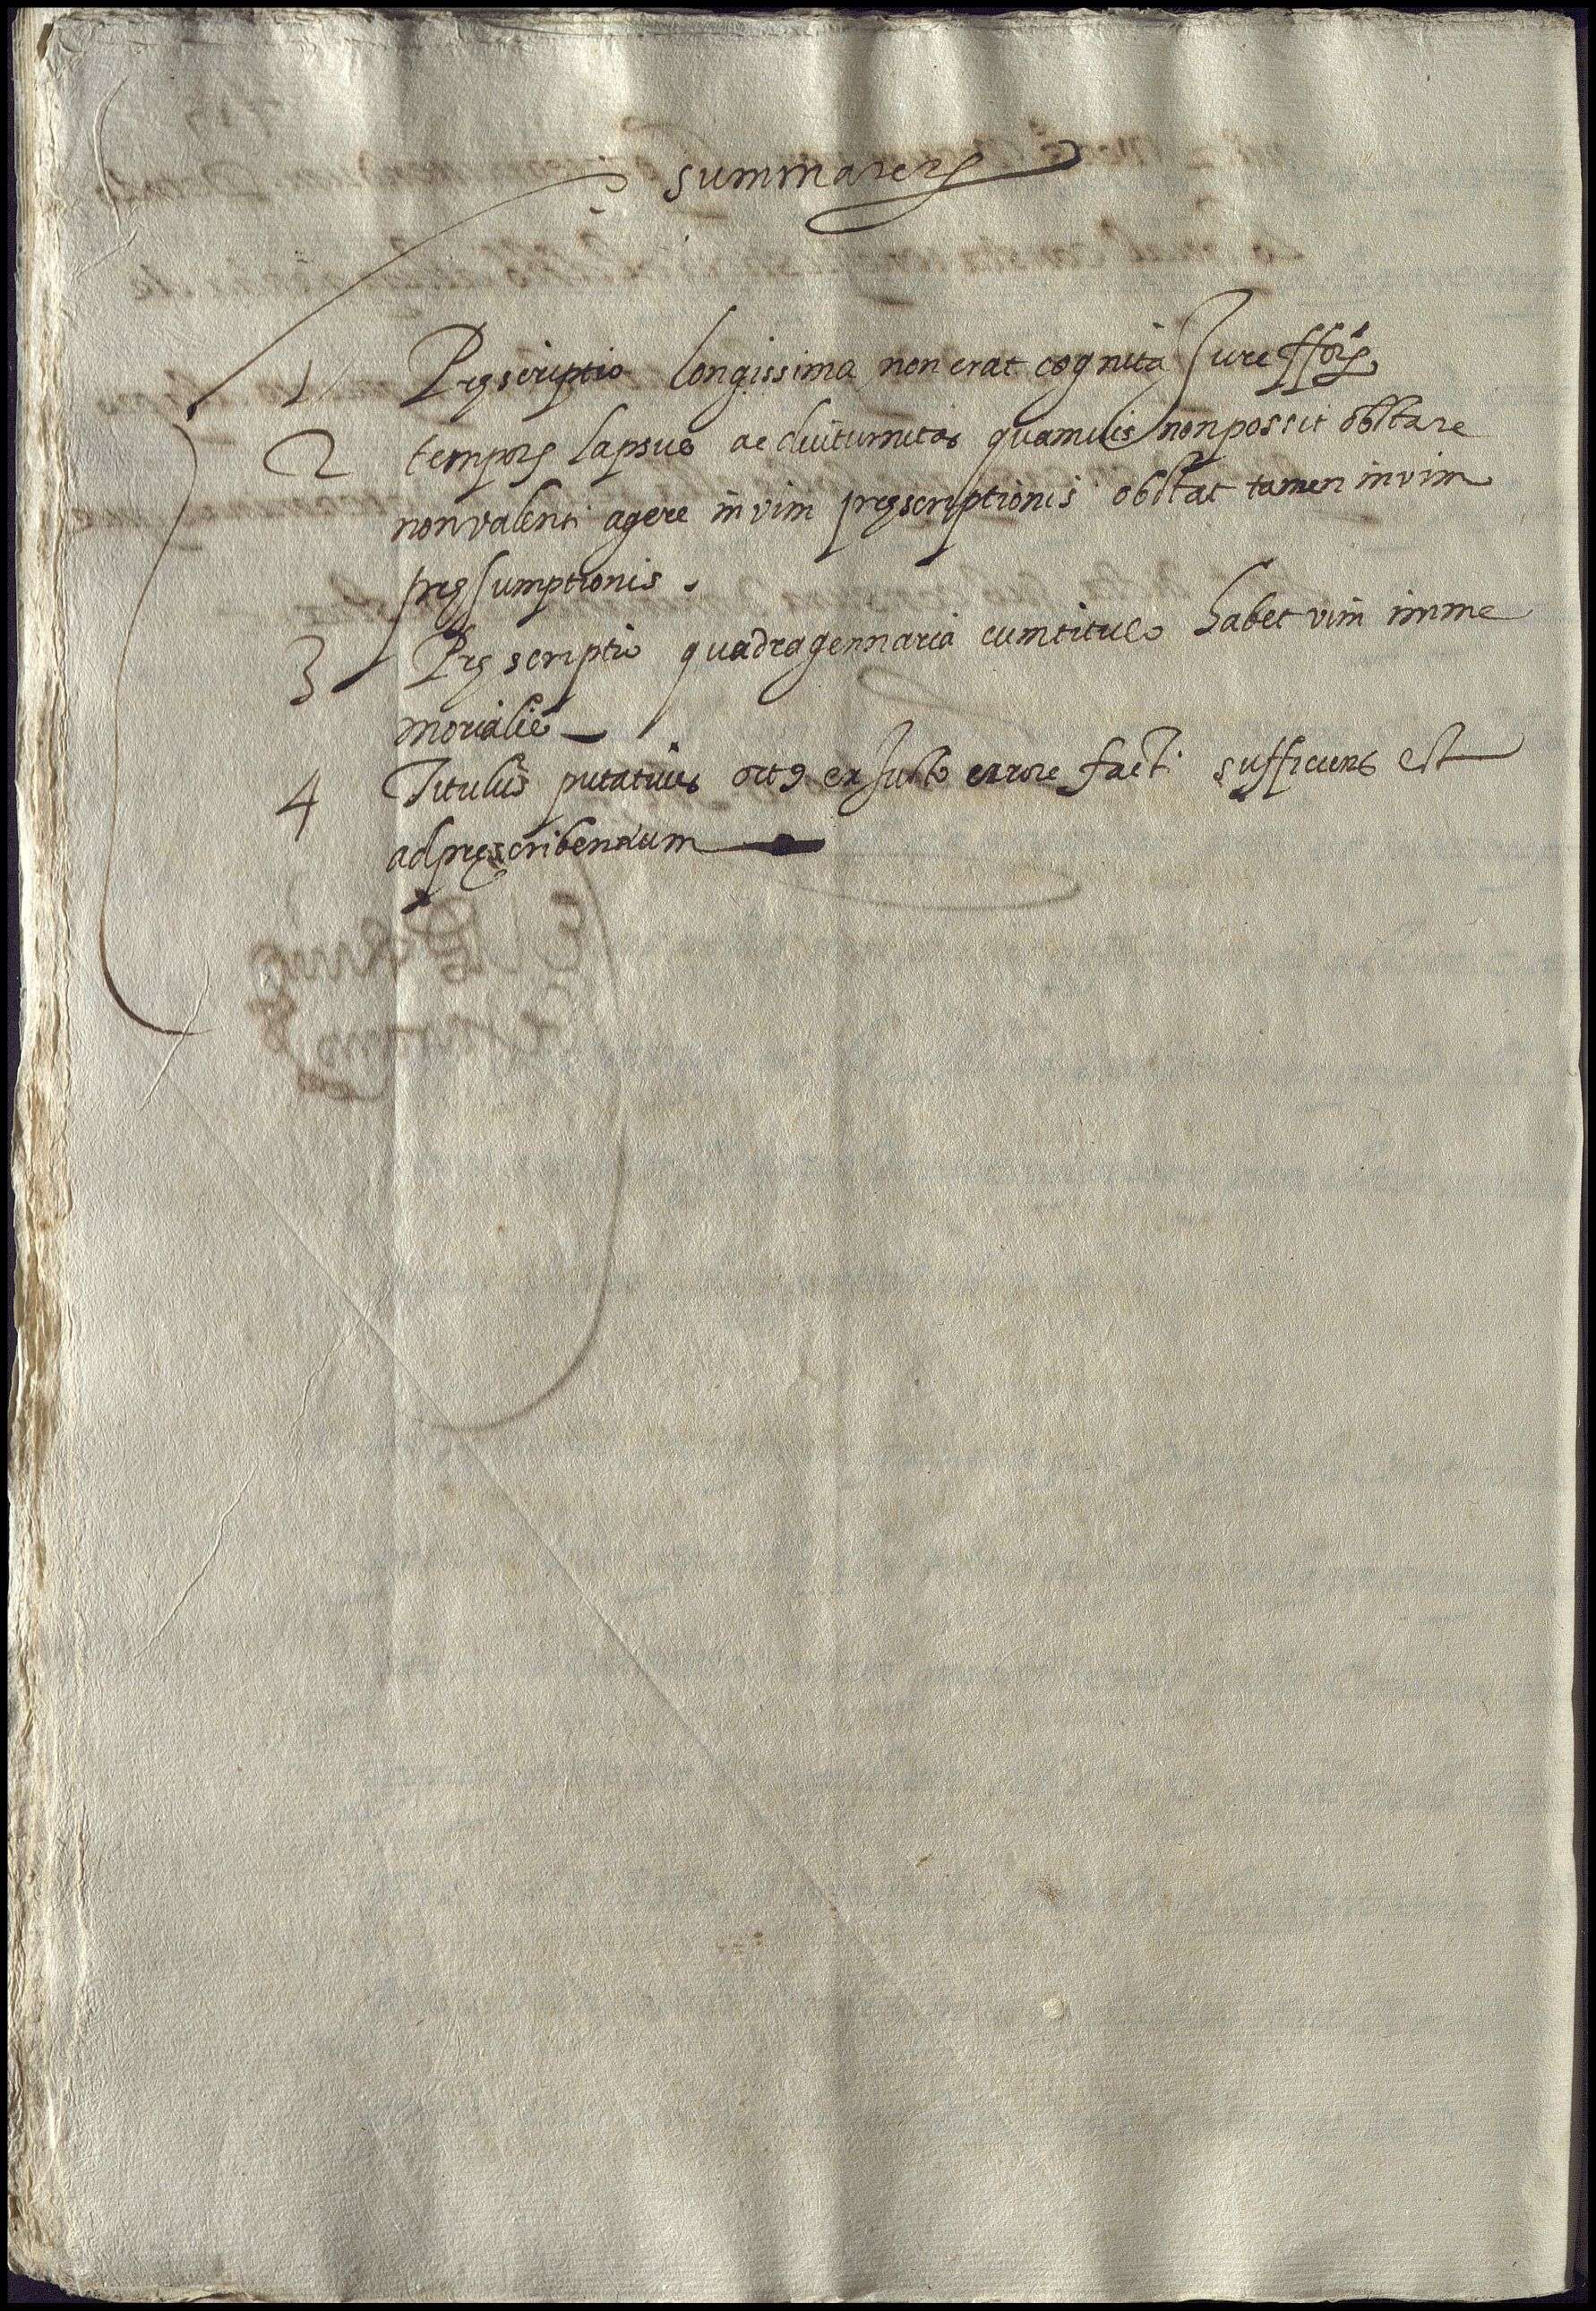 summarers
1 Pręscriptio longissima non erat cognita Jure fforę
2 temporę lapsus ac diuturnitas quamuis non possit obstare
non valenti agere in vim pręscriptionis obstat tamen in vim
pręsumptionis.
3 Pręscriptio quadragennaria cum titulo habet vim imme
morialis
4 Titulus putatiuus ort9 ex Justo errore facti sufficiens est
ad pręscribendum